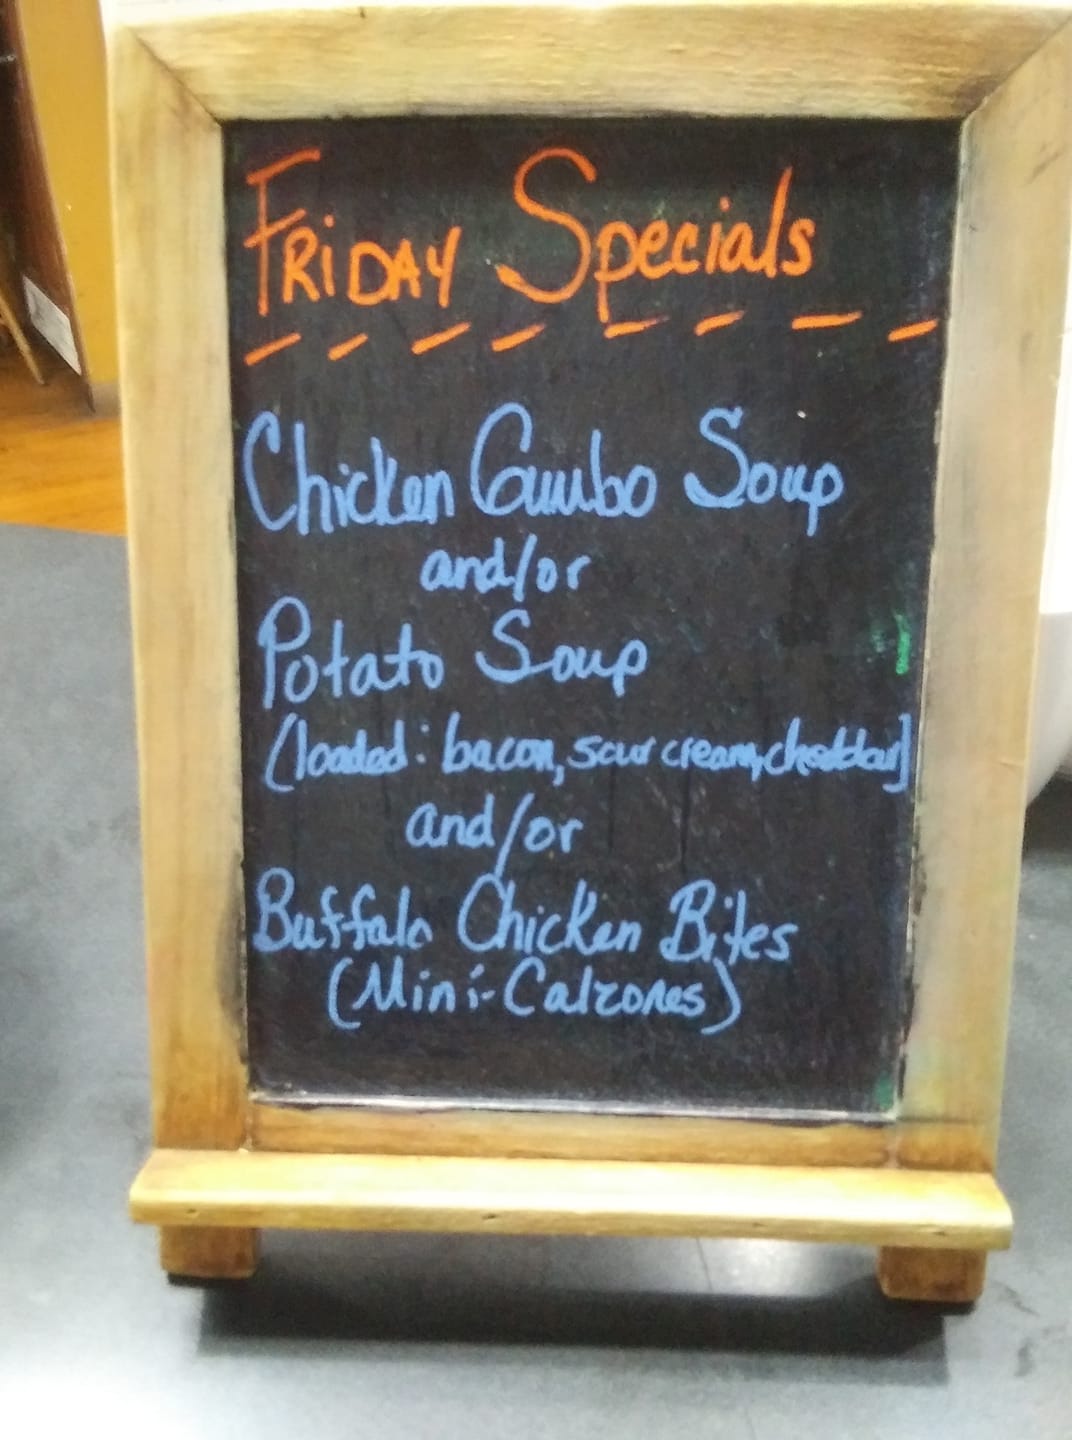 FRiDAY Specials
Chicken Gumbo Soup
and/or
Potato Soup
(loaded: bacon, sour cream, cheddar]
and/or
Buffalo Chicken Bites
(Mini-Calzones)